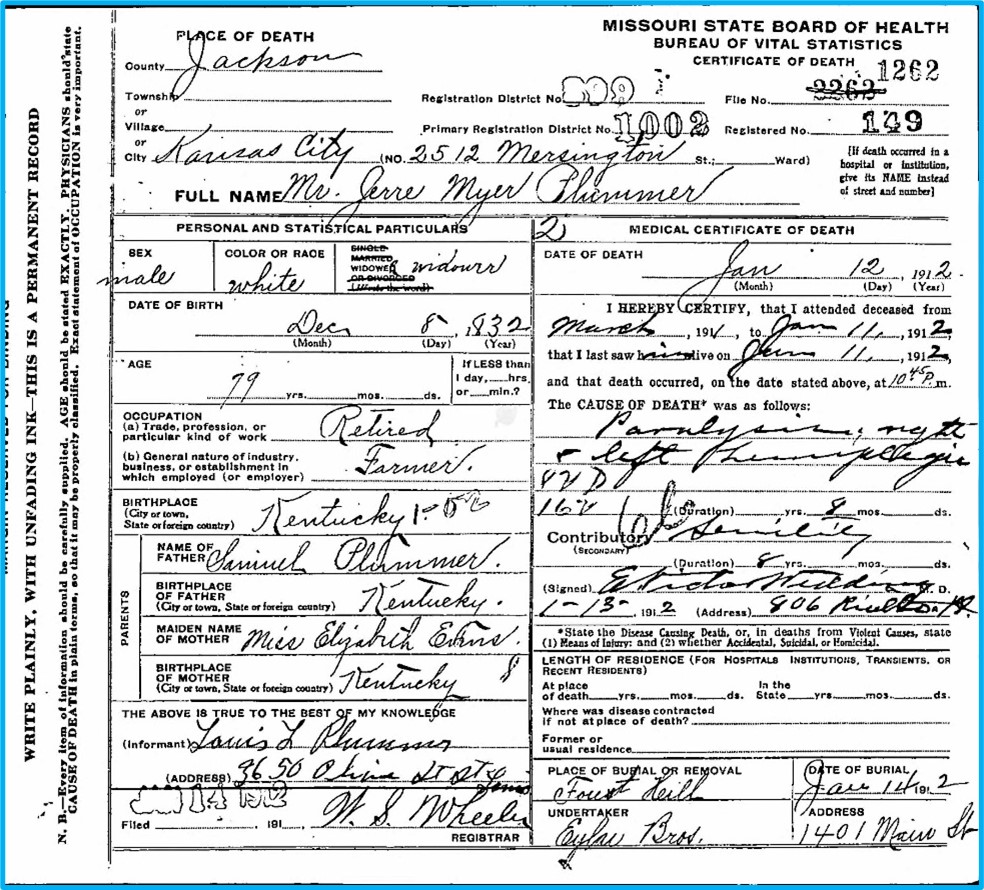 MISSOURI STATE BOARD OF HEALTH
BUREAU OF VITAL STATISTICS
CERTIFICATE OF DEATH
PLACE OF DEATH
County Jackson
Township
or
Village
or
City Kansas City (NO. 2512 Mersington St.; Ward)
Registration District No.
File No. 2262 1262
Primary Registration District No. 1002 Registered No. 149
[If death occurred in a
hospital or institution,
give its NAME instead
of street and number]
FULL NAME Mr. Jerre Myer Plummer
PERSONAL AND STATISTICAL PARTICULARS
SEX
male
COLOR OR RACE
white
SINGLE
MARRIED
WIDOWED
OR DIVORCED
(Write the word)
widower
DATE OF BIRTH
Dec 8, 1832
(Month) (Day) (Year)
AGE
79 yrs. mos. ds.
If LESS than
1 day, hrs.
or min.?
OCCUPATION
(a) Trade, profession, or
particular kind of work Retired
(b) General nature of industry,
business, or establishment in
which employed (or employer) Farmer.
BIRTHPLACE
(City or town,
State or foreign country) Kentucky
PARENTS
NAME OF
FATHER Samuel Plummer.
BIRTHPLACE
OF FATHER
(City or town, State or foreign country) Kentucky.
MAIDEN NAME
OF MOTHER Miss Elizabeth Evans.
BIRTHPLACE
OF MOTHER
(City or town, State or foreign country) Kentucky 8
THE ABOVE IS TRUE TO THE BEST OF MY KNOWLEDGE
(Informant) Louis L Plummer
(ADDRESS) 3650 Olive St St Louis
14 1912
Filed 191 W. S. Wheeler
REGISTRAR
2 MEDICAL CERTIFICATE OF DEATH
DATE OF DEATH
Jan 12, 1912.
(Month) (Day) (Year)
I HEREBY CERTIFY, that I attended deceased from
March, 1911, to Jan 11, 1912,
that I last saw him alive on Jan 11, 1912,
and that death occurred, on the date stated above, at 10 45 P. m.
The CAUSE OF DEATH* was as follows:
Paralysis, right
& left Hemiplegia
(Duration) yrs. 8 mos. ds.
Contributory Senility
(SECONDARY)
(Duration) 8 yrs. mos. ds.
(Signed) E Victor Wedding M. D.
1-13- 1912 (Address) 906 Rialto
*State the Disease Causing Death, or, in deaths from Violent Causes, state
(1) Means of Injury: and (2) whether Accidental, Suicidal, or Homicidal.
LENGTH OF RESIDENCE (FOR HOSPITALS INSTITUTIONS, TRANSIENTS, OR
RECENT RESIDENTS)
At place
of death yrs. mos. ds.
In the
State yrs. mos. ds.
Where was disease contracted
if not at place of death?
Former or
usual residence
PLACE OF BURIAL OR REMOVAL
Forest Hill
DATE OF BURIAL
Jan 14 1912
UNDERTAKER
Eylar Bros.
ADDRESS
1401 Main St
WRITE PLAINLY, WITH UNFADING INK—THIS IS A PERMANENT RECORD
N. B.—Every item of information should be carefully supplied. AGE should be stated EXACTLY. PHYSICIANS should state
CAUSE OF DEATH in plain terms, so that it may be properly classified. Exact statement of OCCUPATION is very important.